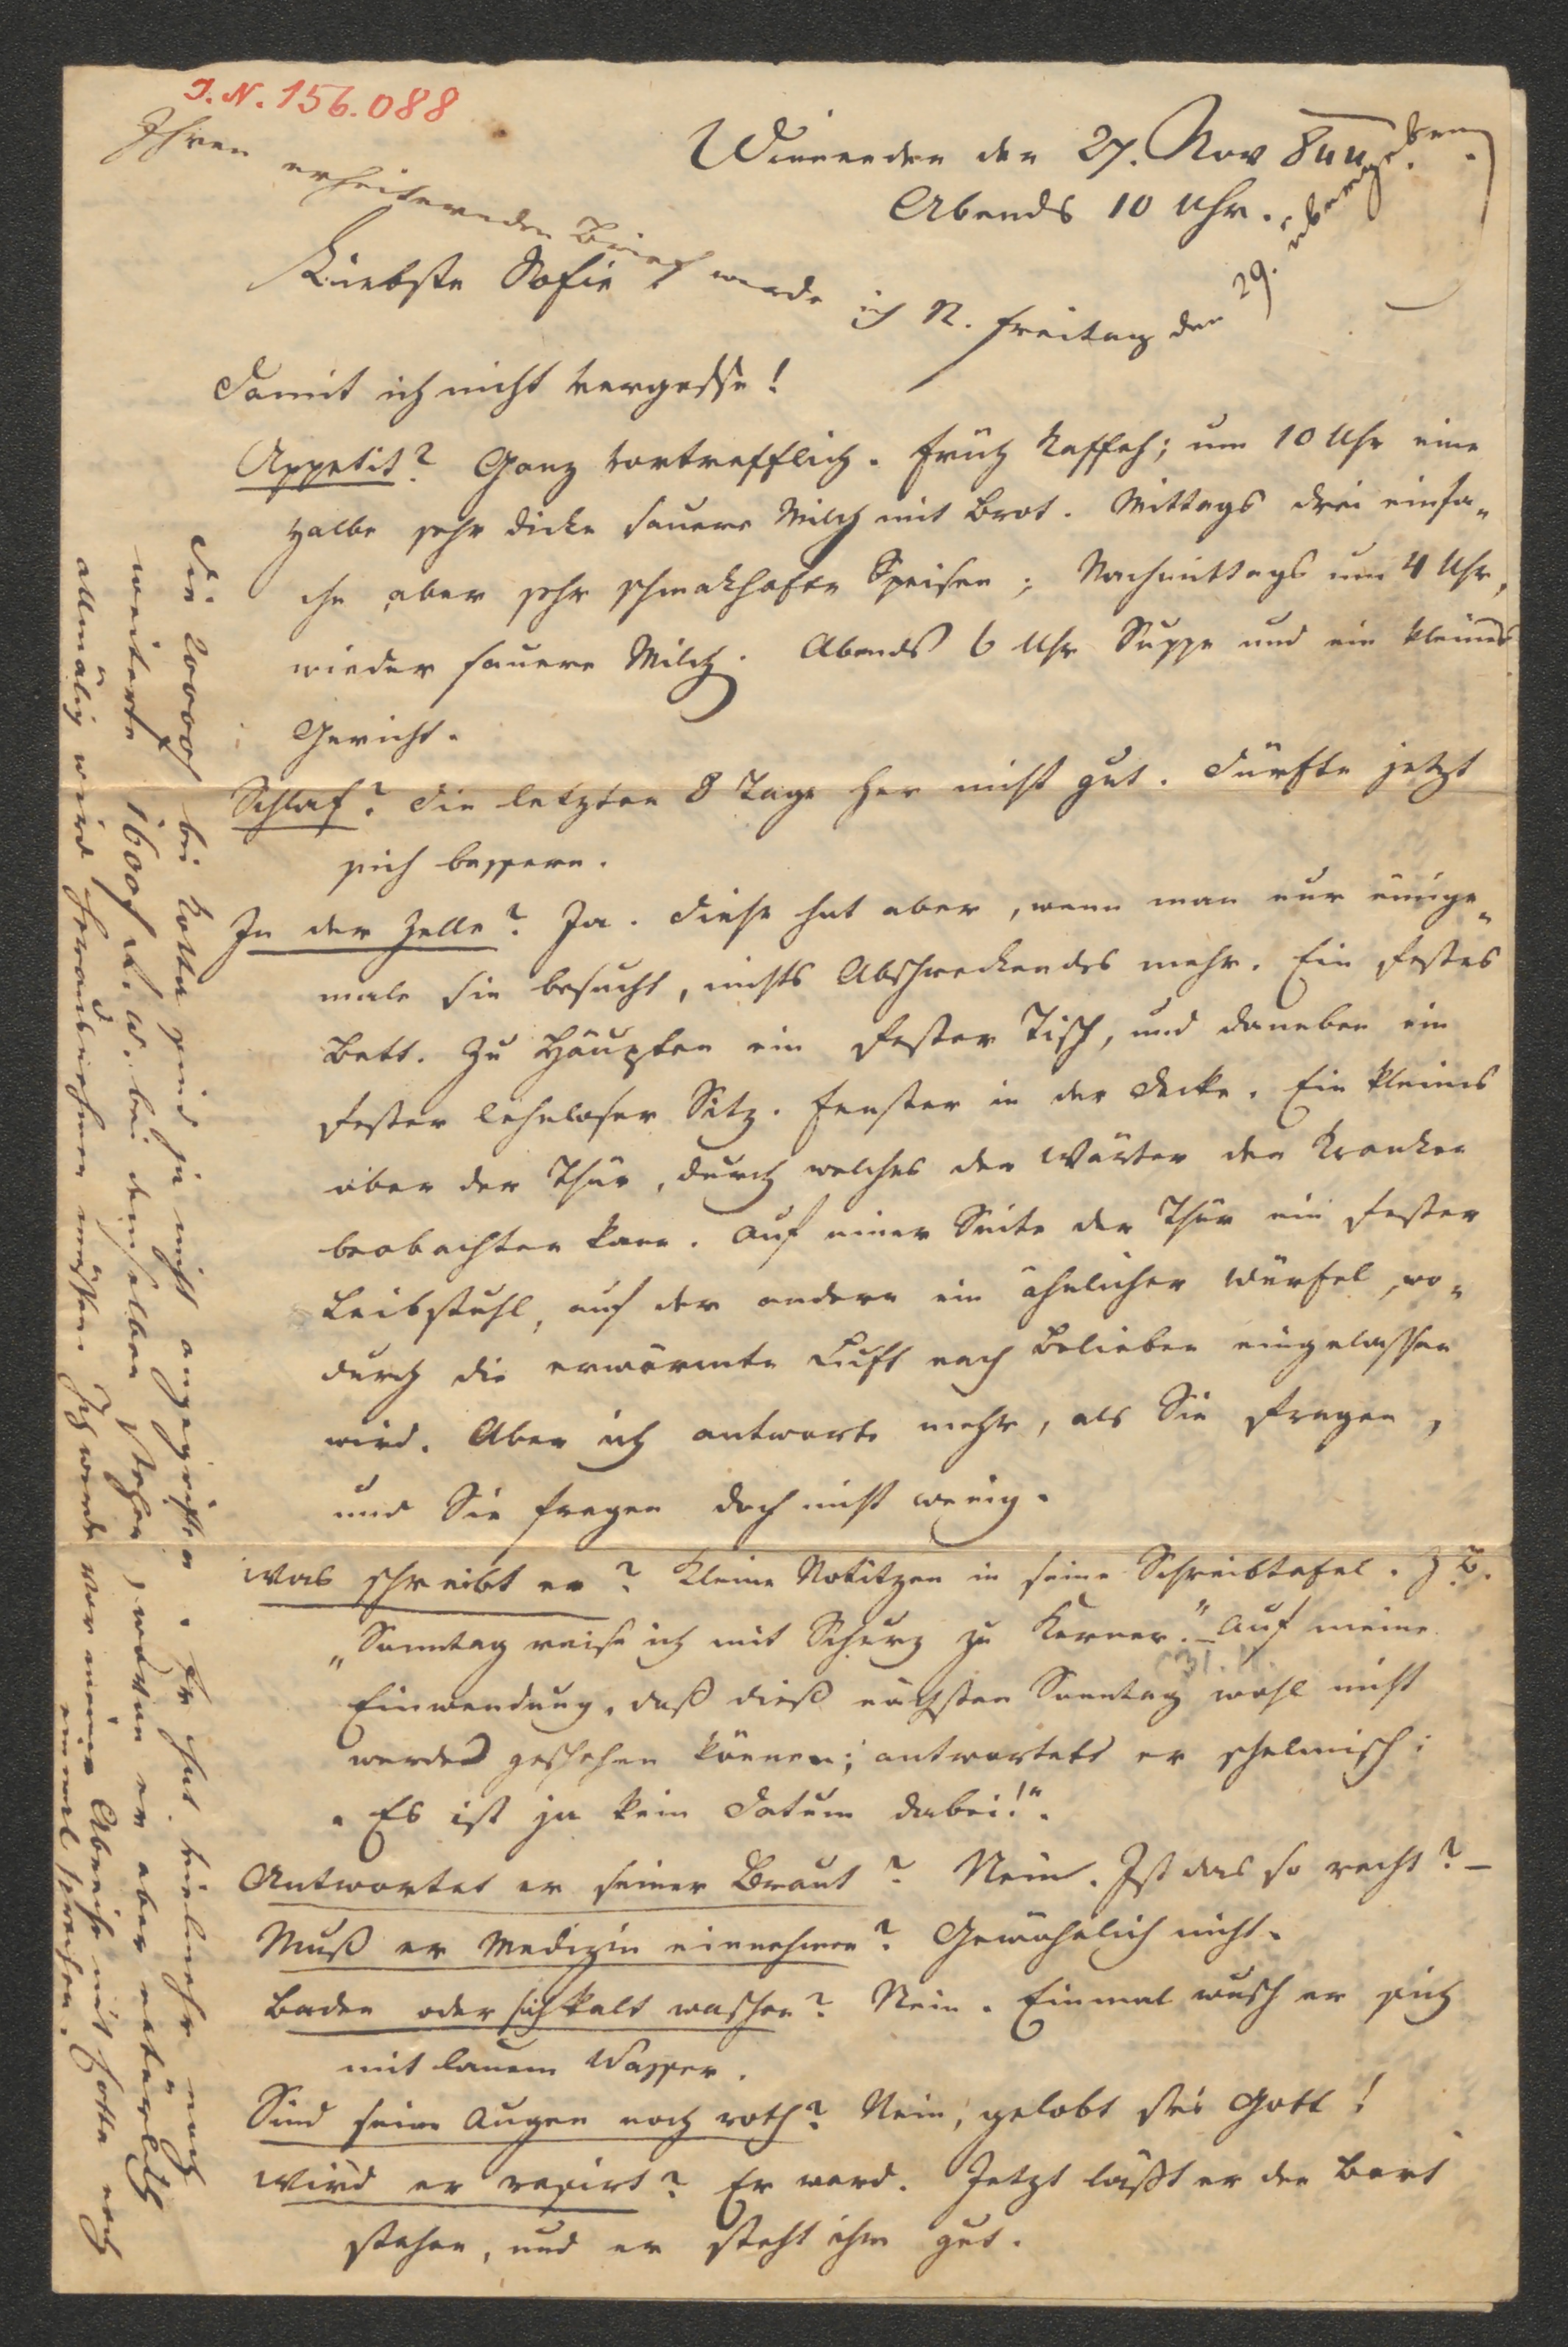 I. N. 156.088
Winnenden den 27. Nov 844
Abends 10 Uhr.
Ihren erheiternden Brief werde ich N. Freitag den 29. übergeben.
Liebste Sofie!
Damit ich nicht vergesse!
Appetit? Ganz vortrefflich. Früh Kaffeh; um 10 Uhr eine
halbe sehr dicke sauere Milch mit Brot. Mittags drei einfa-
che aber sehr schmakhafte Speisen; Nachmittags um 4 Uhr,
wieder sauere Milch. Abends 6 Uhr Suppe und ein kleines
Gericht.
Schlaf? Die letzten 8 Tage her nicht gut. Dürfte jetzt
sich bessern.
In der Zelle? Ja. Diese hat aber, wenn man nur einige-
male sie besucht, nichts Abschreckendes mehr. Ein festes
Bett. Zu Häupten ein fester Tisch, und daneben ein
fester lehnloser Sitz. Fenster in der Decke. Ein kleines
ober der Thür, durch welches der Wärter den Kranken
beobachten kann. Auf einer Seite der Thür ein fester
Leibstuhl, auf der andern ein ähnlicher Würfel, wo-
durch die erwärmte Luft nach Belieben eingelassen
wird. Aber ich antworte mehr, als Sie fragen,
und Sie fragen doch nicht wenig.
Was schreibt er? Kleine Notitzen in seine Schreibtafel. Z. B.
„Sonntag reise ich mit Schurz zu Kerner." – Auf meine
Einwendung, daß dieß nächsten Sonntag wohl nicht
werde geschehen können; antwortete er schelmisch:
„Es ist ja kein Datum dabei!".
Antwortet er seiner Braut? Nein. Ist das so recht? –
Muß er Medizin einnehmen? Gewöhnlich nicht.
Baden oder sich kalt waschen? Nein. Einmal wusch er sich
mit lauem Wasser.
Sind seine Augen noch roth? Nein, gelobt sei Gott!
Wird er rasirt? Er ward. Jetzt läßt er den Bart
stehen, und er steht ihm gut.
Die 2000f bei Cotta sind ja nicht angegriffen. Er hat vielmehr noch
weitere 1600f R. W. bei demselben stehen, wovon er aber natürlich
allmälig wird herabnehmen müssen. Ich werde vor meiner Abreise mit Cotta noch
einmal sprechen.